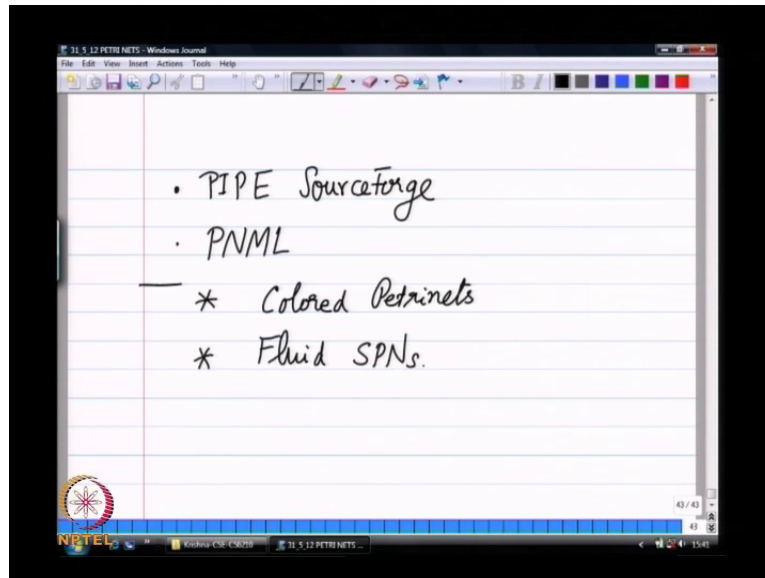 31_5_12 PETRI NETS - Windows Journal
File Edit View Insert Actions Tools Help
B I
• PIPE SourceForge
• PNML
* Colored Petrinets
* Fluid SPNs.
43 / 43
43
NPTEL
Krishna-CSE-CS6210
31_5_12 PETRI NETS ...
15:41